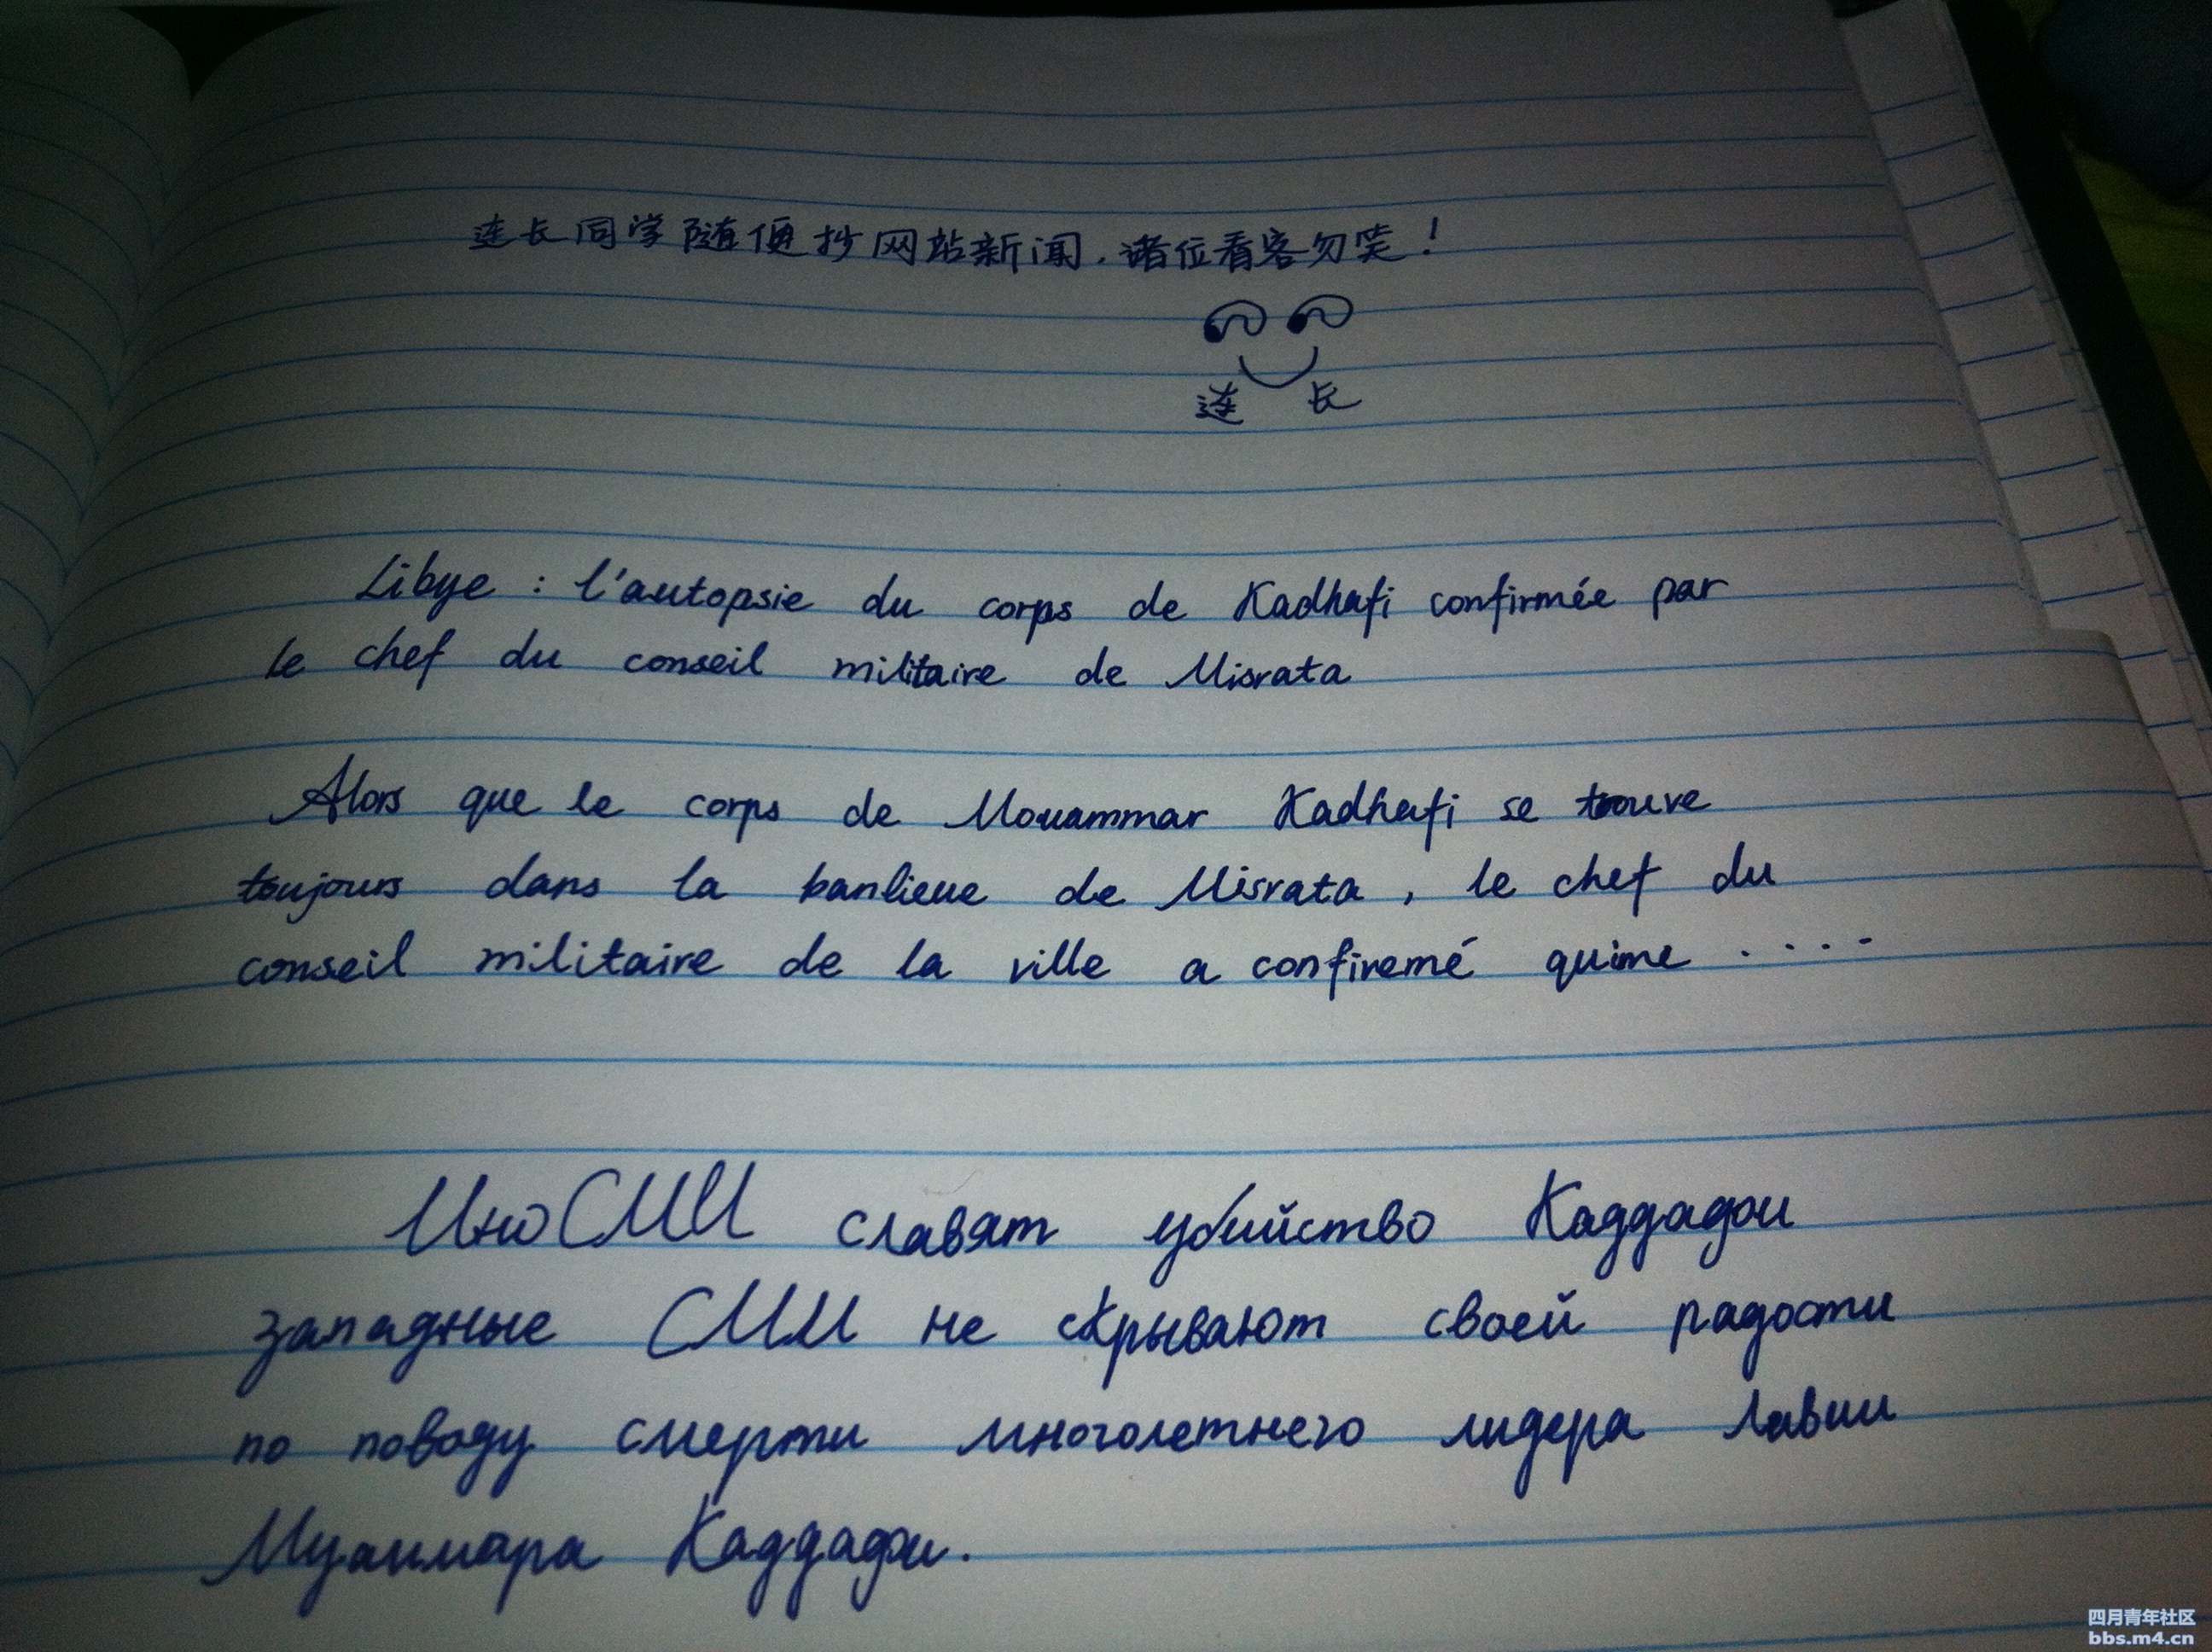 连长同学随便抄网站新闻，诸位看客勿笑！
连长
Libye : l'autopsie du corps de Kadhafi confirmée par
le chef du conseil militaire de Misrata
Alors que le corps de Mouammar Kadhafi se trouve
toujours dans la banlieue de Misrata, le chef du
conseil militaire de la ville a confiremé quime .....
ИноСМИ славят убийство Каддафи
западные СМИ не скрывают своей радости
по поводу смерти многолетнего лидера Лавии
Муаммара Каддафи.
四月青年社区
bbs.m4.cn